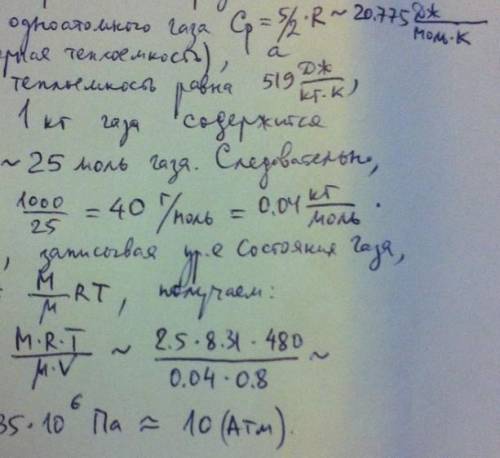 одноатомного газа Cp = 5/2·R ~ 20.775 Дж/моль·К
рная теплоемкость), а
теплоемкость равна 519 Дж/кг·К,
1 кг газа содержится
~ 25 моль газа. Следовательно,
1000/25 = 40 г/моль = 0.04 кг/моль.
, записывая ур.е состояния газа,
M/μ RT, получаем:
M·R·T/μ·V ~ 2.5·8.31·480/0.04·0.8 ~
35·10⁶ Па ≈ 10 (Атм).